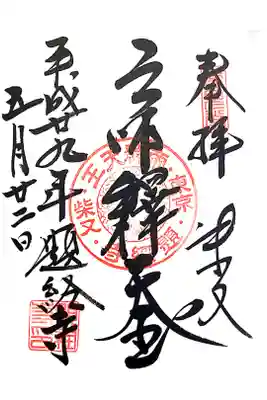 奉拝 柴又
帝釋天王
平成廿九年 題経寺
五月廿二日
東京
柴又